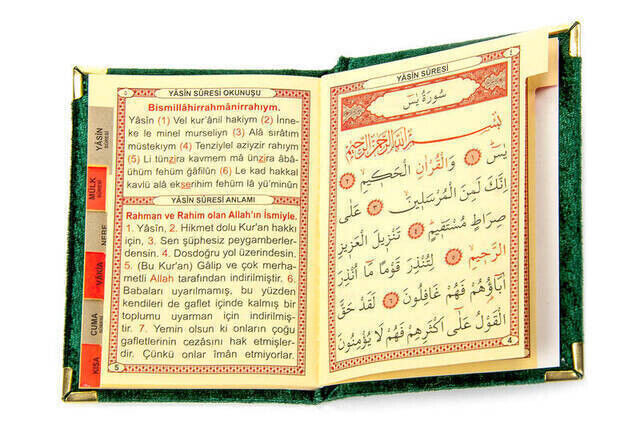 YÂSİN SÛRESİ OKUNUŞU
Bismillâhirrahmânirrahıym.
Yâsîn (1) Vel kur'ânil hakiym (2) İnne-
ke le minel murseliyn (3) Alâ sırâtım
müstekıym (4) Tenziylel aziyzir rahıym
(5) Li tünzira kavmem mâ ünzira âbâ-
ühüm fehüm ğâfilûn (6) Le kad hakkal
kavlü alâ ekserihim fehüm lâ yü'minûn
YÂSİN SÛRESİ ANLAMI
Rahman ve Rahim olan Allah'ın İsmiyle.
1. Yâsîn, 2. Hikmet dolu Kur'an hakkı
için, 3. Sen şüphesiz peygamberler-
densin. 4. Dosdoğru yol üzerindesin.
5. (Bu Kur'an) Gâlip ve çok merha-
metli Allah tarafından indirilmiştir. 6.
Babaları uyarılmamış, bu yüzden
kendileri de gaflet içinde kalmış bir
toplumu uyarman için indirilmiş-
tir. 7. Yemin olsun ki onların çoğu
gafletlerinin cezasını hak etmişler-
dir. Çünkü onlar îmân etmiyorlar.
5
YÂSİN
SÛRESİ
MÜLK
SÛRESİ
NEBE
VÂKIA
CUMA
KISA
YÂSİN SÛRESİ
سُورَةُ يٰسٓ
بِسْمِ اللّٰهِ الرَّحْمٰنِ الرَّحِيمِ
يٰسٓ ١ وَالْقُرْاٰنِ الْحَكِيمِ ٢
اِنَّكَ لَمِنَ الْمُرْسَلِينَ ٣ عَلٰى
صِرَاطٍ مُسْتَقِيمٍ ٤ تَنْزِيلَ الْعَزِيزِ
الرَّحِيمِ ٥ لِتُنْذِرَ قَوْمًا مَٓا اُنْذِرَ
اٰبَٓاؤُهُمْ فَهُمْ غَافِلُونَ ٦ لَقَدْ حَقَّ
الْقَوْلُ عَلٰٓى اَكْثَرِهِمْ فَهُمْ لَا يُؤْمِنُونَ
4